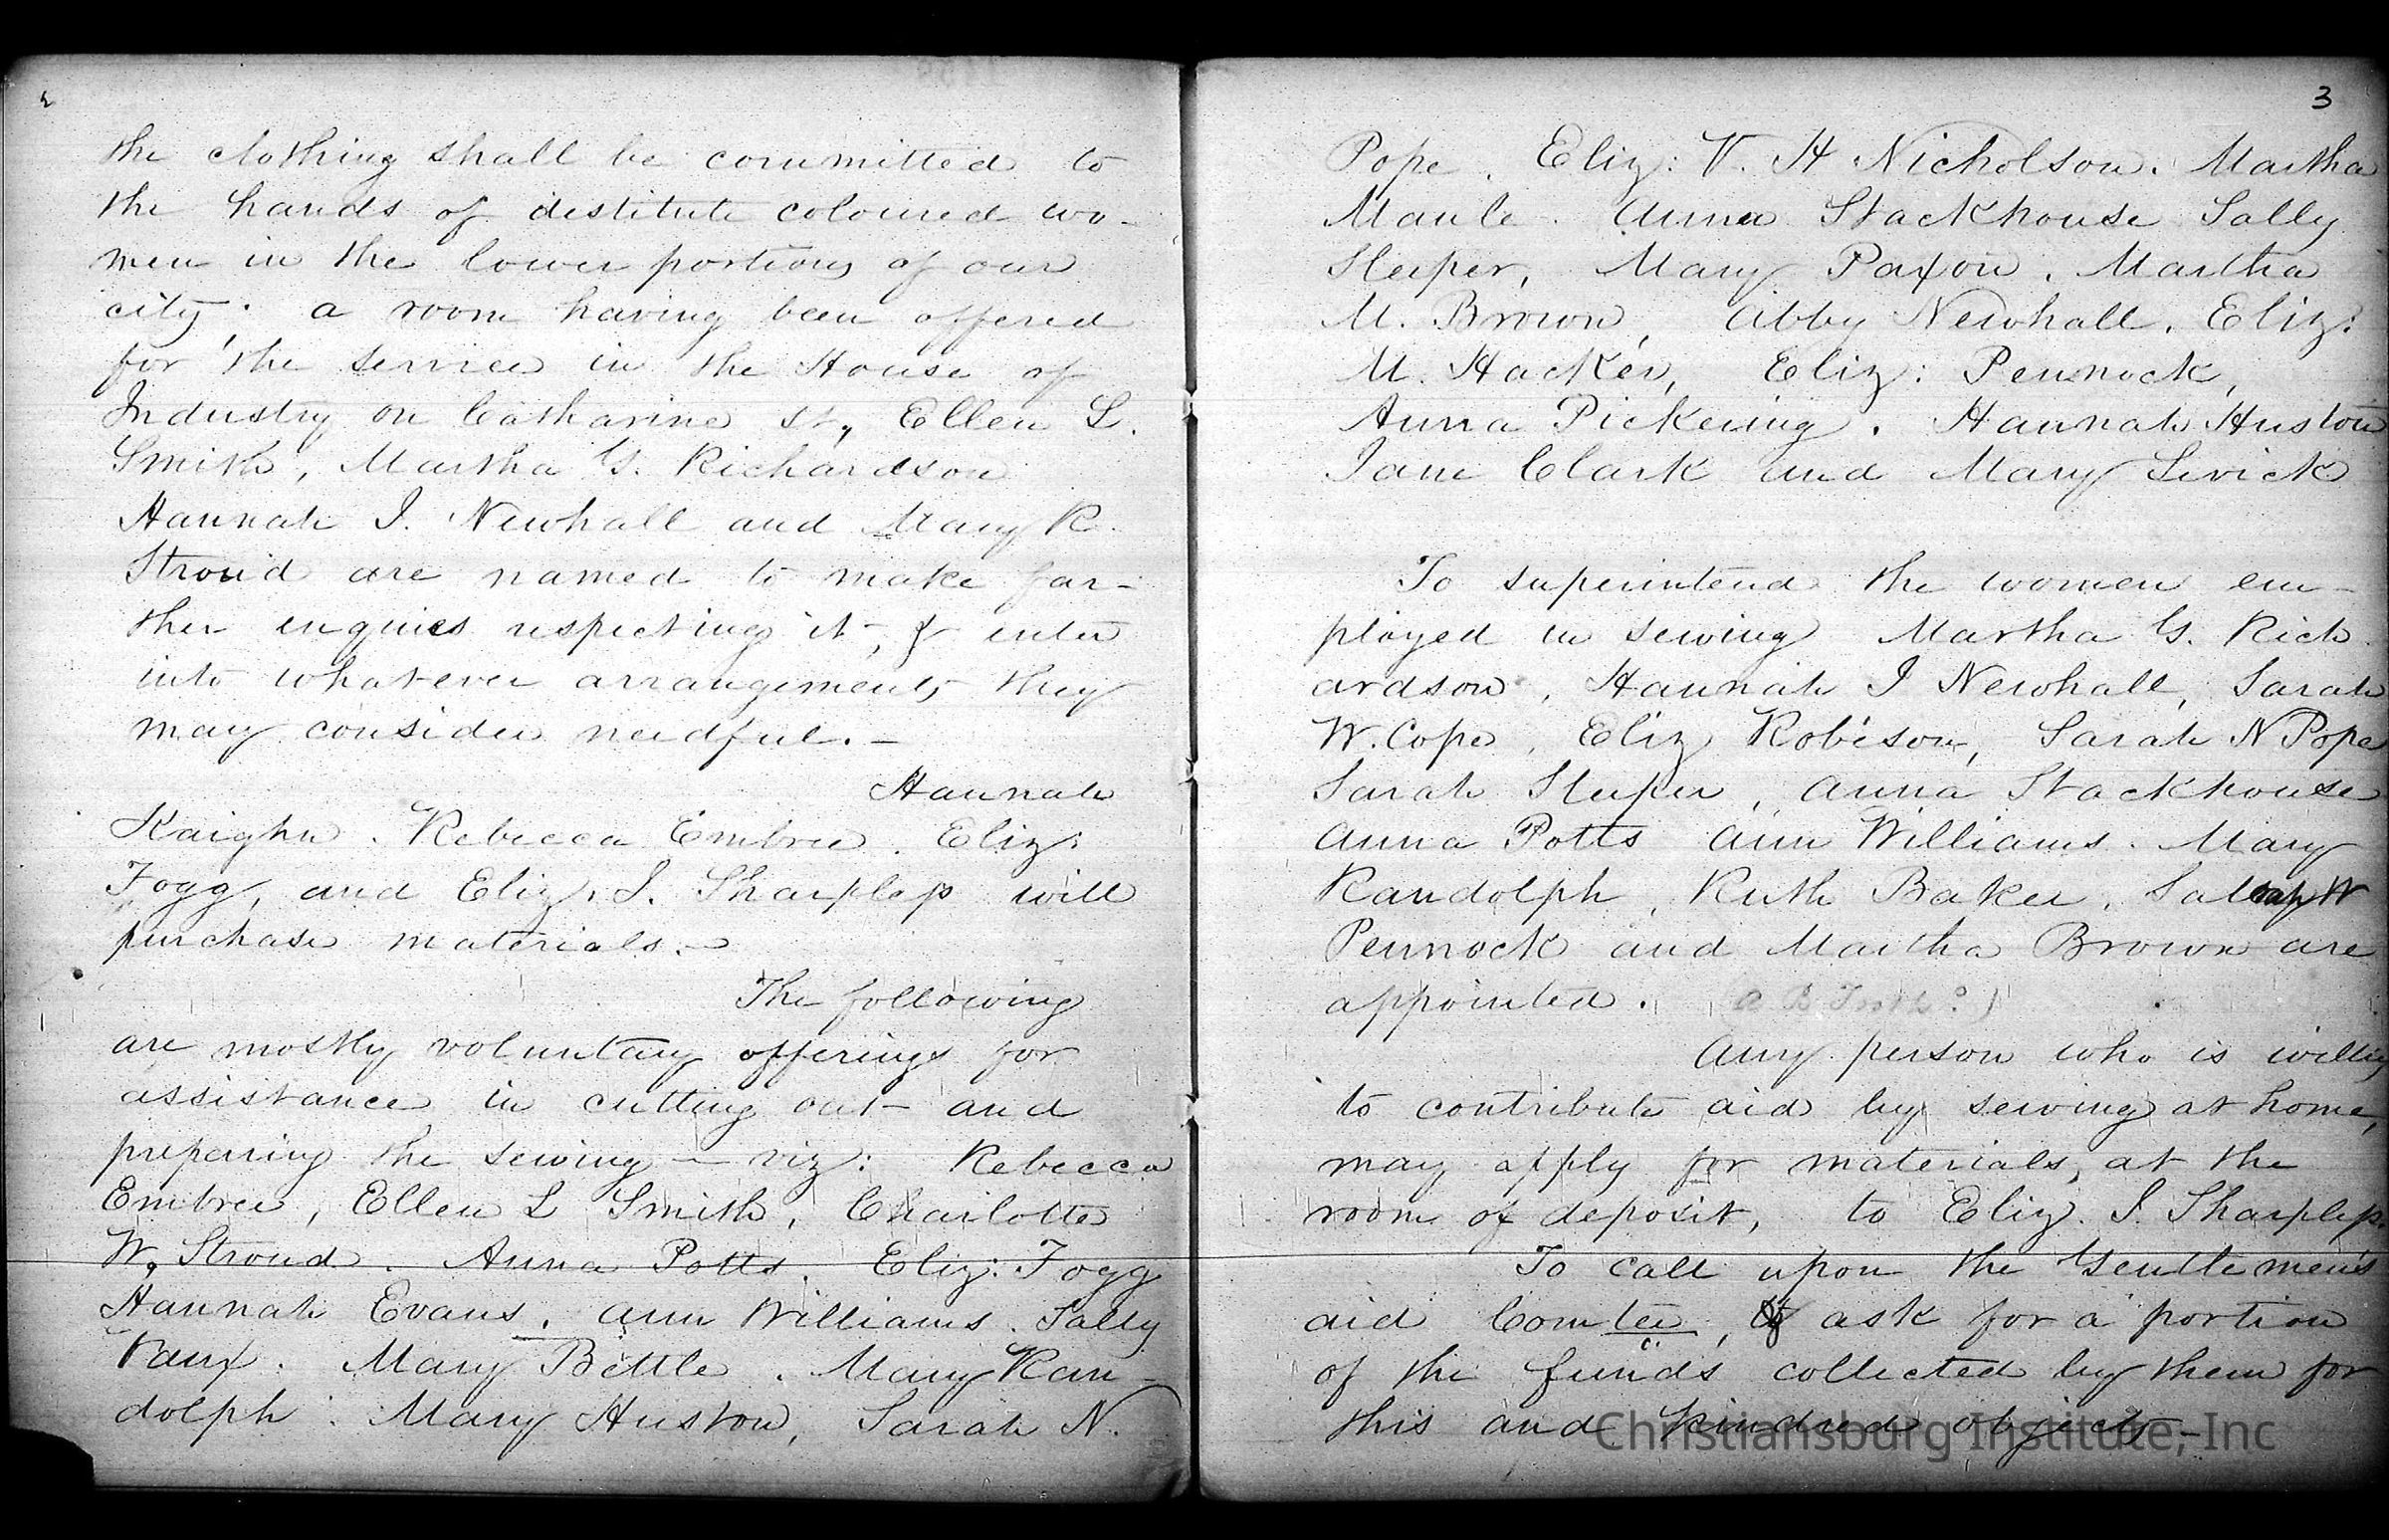 2
the clothing shall be committed to
the hands of destitute coloured wo-
men in the lower portions of our
city; a room having been offered
for the service in the House of
Industry on Catharine st., Ellen L.
Smith, Martha G. Richardson
Hannah J. Newhall and Mary R.
Stroud are named to make far-
ther enquiries respecting it, & enter
into whatever arrangements they
may consider needful. -
Hannah
Kaighn. Rebecca Embree. Eliz:
Fogg, and Eliz. J. Sharpless will
purchase materials. -
The following
are mostly voluntary offerings for
assistance in cutting out and
preparing the sewing - viz: Rebecca
Embree, Ellen L Smith, Charlotte
W. Stroud. Anna Potts. Eliz: Fogg
Hannah Evans. Ann Williams. Sally
Vaux. Mary Bettle. Mary Ran-
dolph. Mary Huston, Sarah N.
3
Pope. Eliz: V. H Nicholson. Martha
Maule. Anna Stackhouse Sally
Sleeper, Mary Paxon. Martha
M. Brown, Abby Newhall. Eliz:
M. Hacker, Eliz: Pennock,
Anna Pickering. Hannah Huston
Jane Clark and Mary Levick
To superintend the women em-
ployed in sewing Martha G. Rich
ardson, Hannah J Newhall, Sarah
W. Cope, Eliz Robeson, Sarah N Pope
Sarah Sleeper, Anna Stackhouse
Anna Potts Ann Williams. Mary
Randolph, Ruth Baker. W
Pennock and Martha Brown are
appointed.
Any person who is willing
to contribute aid by sewing at home,
may apply for materials, at the
room of deposit, to Eliz. J. Sharpless.
To call upon the Gentlemen's
aid Comtee, & ask for a portion
of the funds collected by them for
this and kindred objects -
Christiansburg Institute, Inc